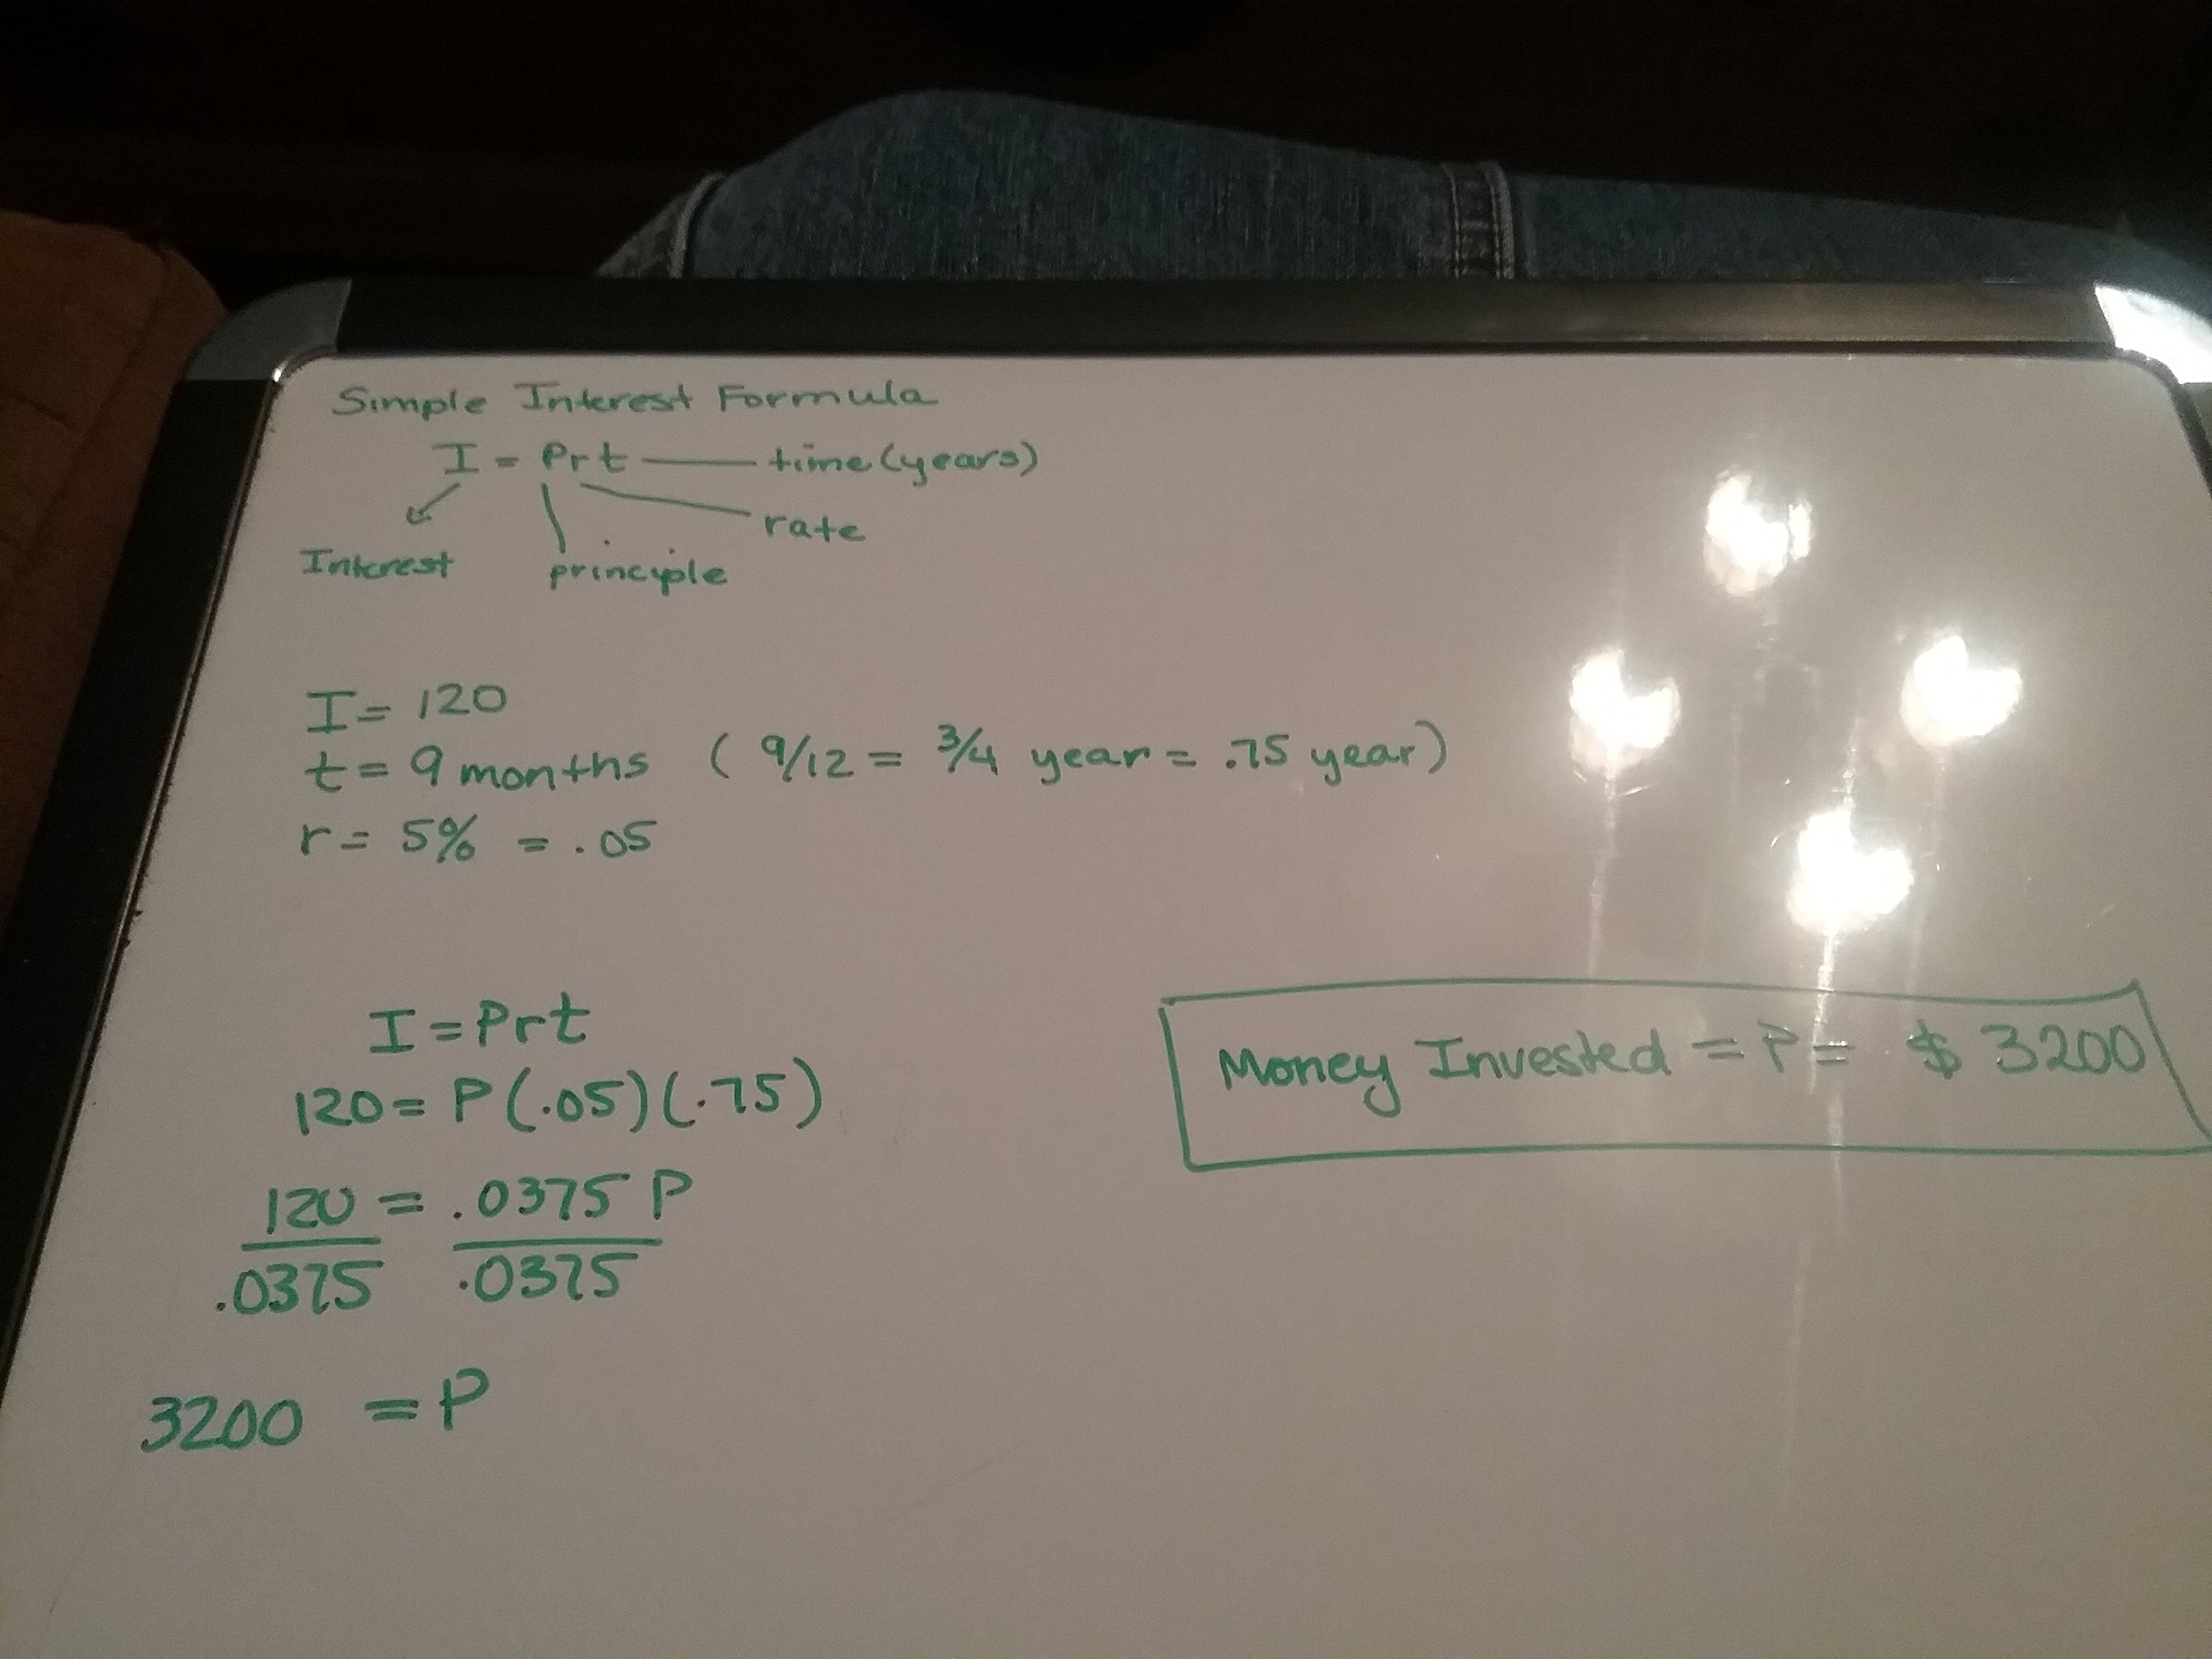 Simple Interest Formula
I = Prt — time (years)
rate
Interest principle
I = 120
t = 9 months ( 9/12 = 3/4 year = .75 year)
r = 5% = .05
I = Prt
120 = P(.05)(.75)
120 = .0375 P
.0375 .0375
3200 = P
Money Invested = P = $ 3200